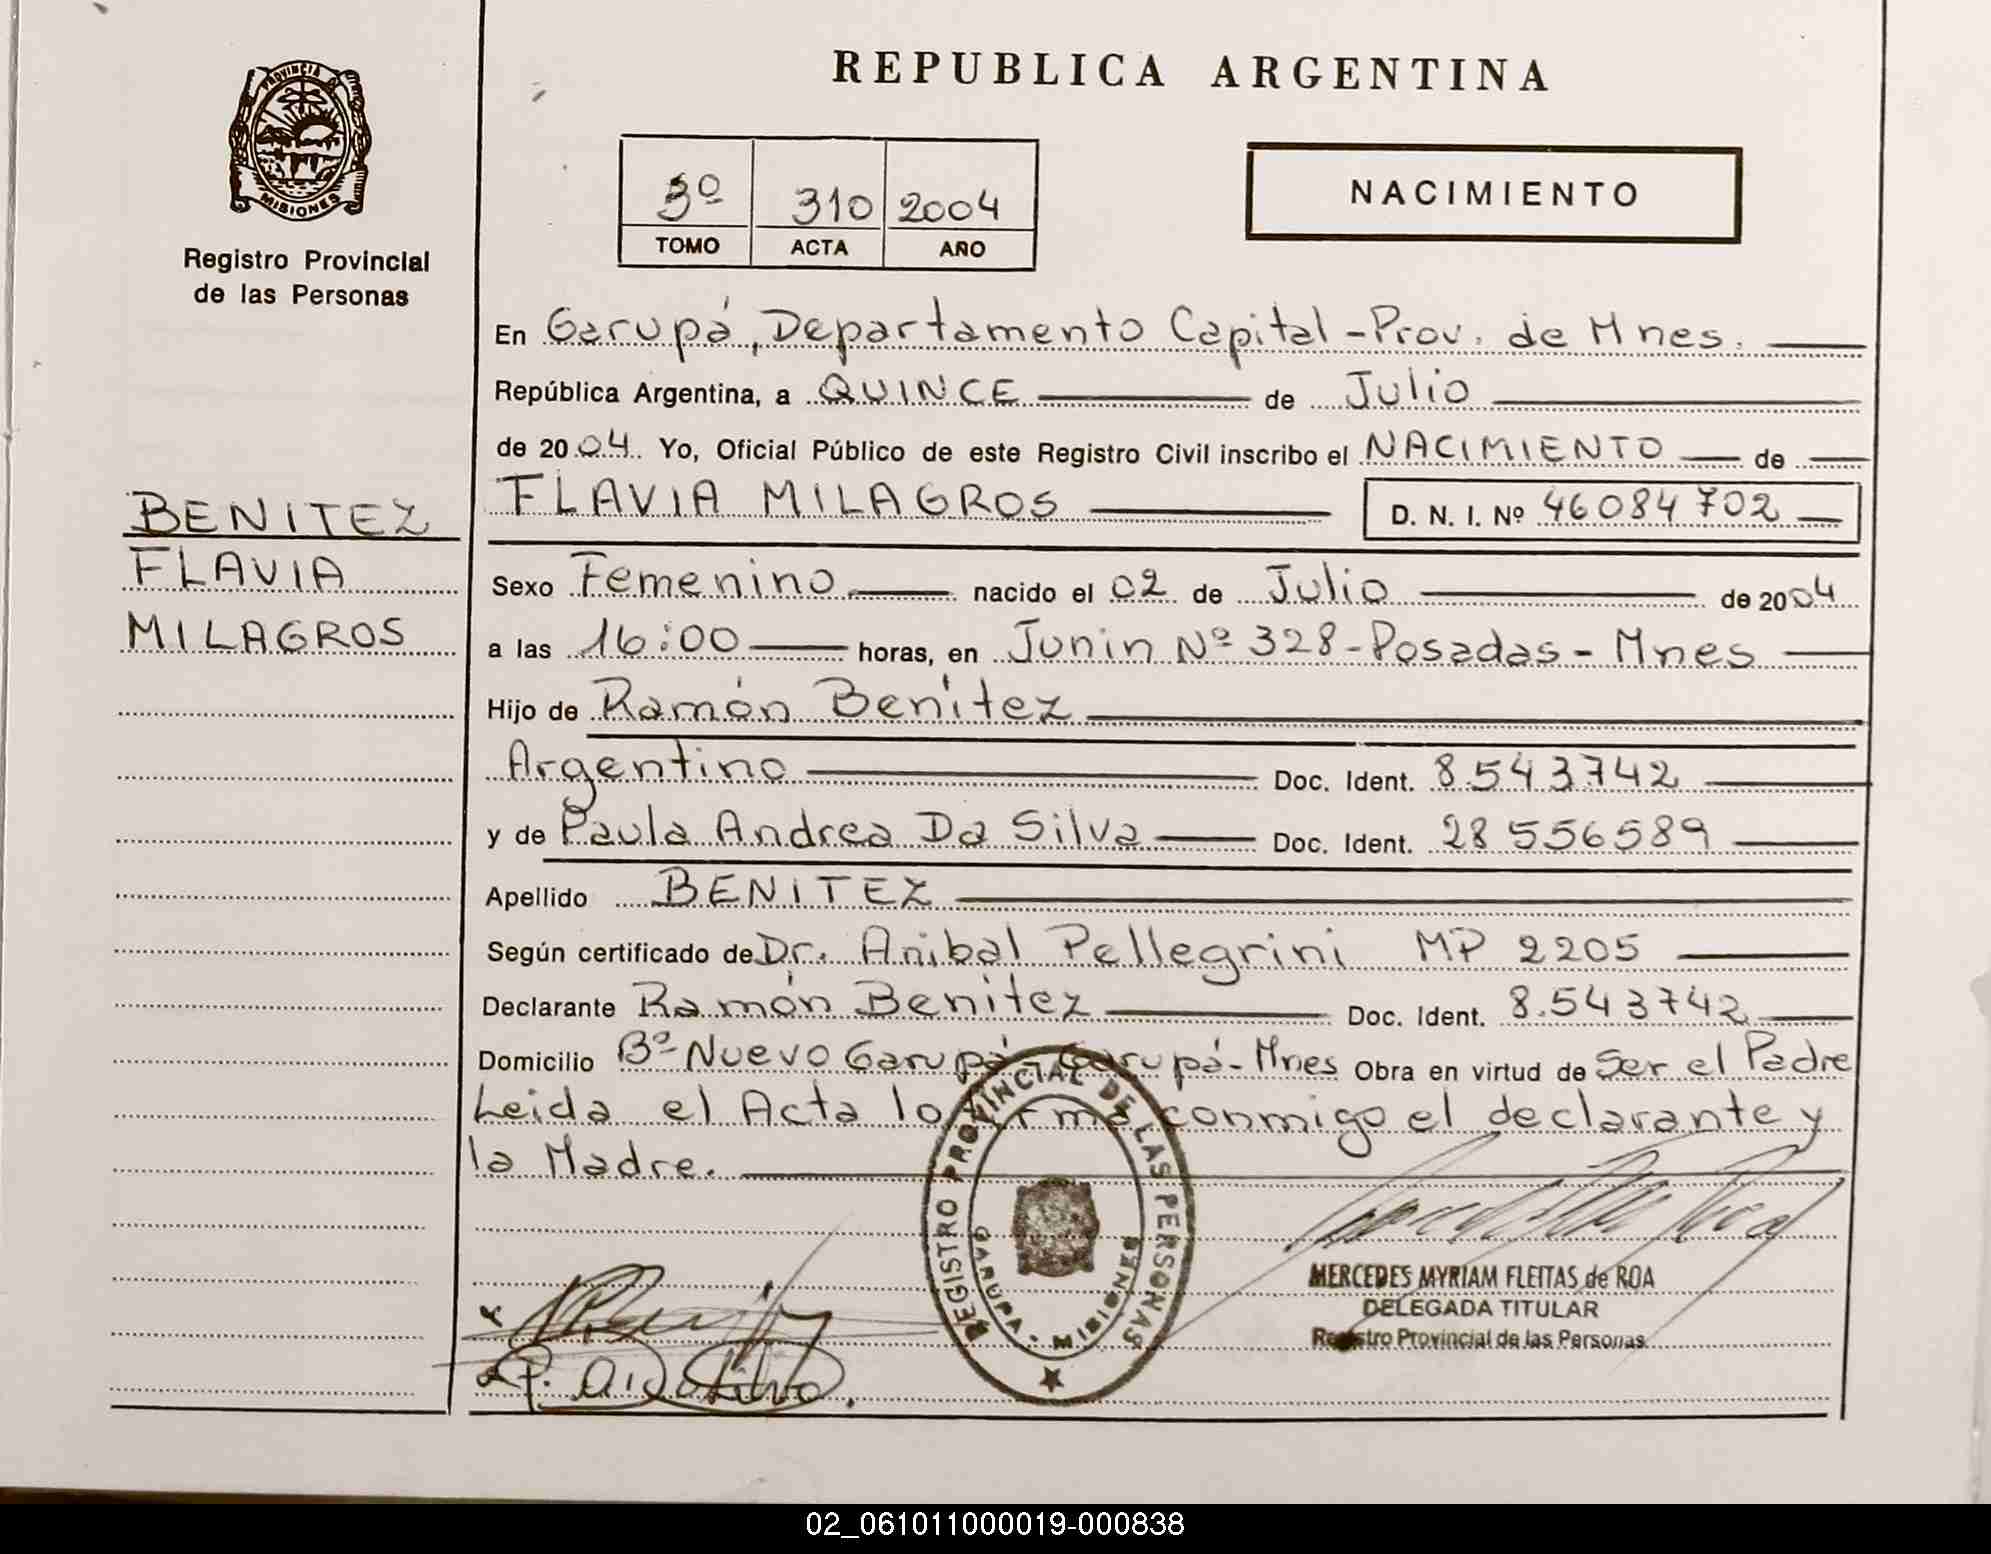 PROVINCIA DE
MISIONES
Registro Provincial
de las Personas
BENITEZ
FLAVIA
MILAGROS
REPUBLICA ARGENTINA
3º 310 2004
TOMO ACTA AÑO
NACIMIENTO
En Garupá, Departamento Capital - Prov. de Mnes.
República Argentina, a QUINCE de Julio
de 2004. Yo, Oficial Público de este Registro Civil inscribo el NACIMIENTO de
FLAVIA MILAGROS D. N. I. Nº 46084702
Sexo Femenino nacido el 02 de Julio de 2004
a las 16:00 horas, en Junin Nº 328 - Posadas - Mnes
Hijo de Ramón Benítez
Argentino Doc. Ident. 8.543742
y de Paula Andrea Da Silva Doc. Ident. 28 556589
Apellido BENITEZ
Según certificado de Dr. Anibal Pellegrini MP 2205
Declarante Ramón Benítez Doc. Ident. 8.543742
Domicilio Bº Nuevo Garupá - Garupá - Mnes Obra en virtud de Ser el Padre
Leida el Acta lo firma conmigo el declarante y
la Madre.
REGISTRO PROVINCIAL DE LAS PERSONAS
GARUPA - MISIONES
MERCEDES MYRIAM FLEITAS de ROA
DELEGADA TITULAR
Registro Provincial de las Personas
P. A. Da Silva.
02_061011000019-000838